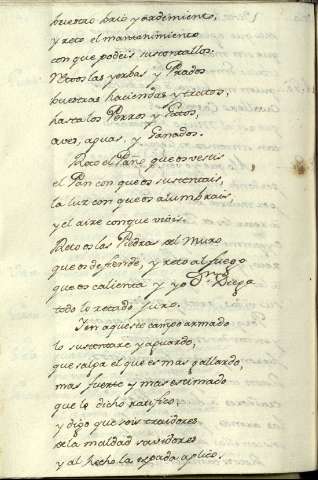 buestro brio y ardimiento,
y reto el mantenimiento
con que podeis sustentallos.
Reto os las yerbas y Prados
buestras haciendas y tratos,
hasta los Perros y Gatos,
aves, aguas, y Ganados.
Reto el Pano que os vestis
el Pan con que os sustentais,
la luz con que os alumbrais,
y el aire con que vivis.
Reto os las Piedras del Muro
que os defiende, y reto al fuego
que os calienta y yo Dn. Diego
todo lo retado juro.
I en aqueste campo armado
lo sustentare y aguardo,
que salga el que es mas gallardo,
mas fuerte y mas estimado
que lo dicho ratifico,
y digo que sois traidores
de la maldad savidores
y al hecho la espada aplico.